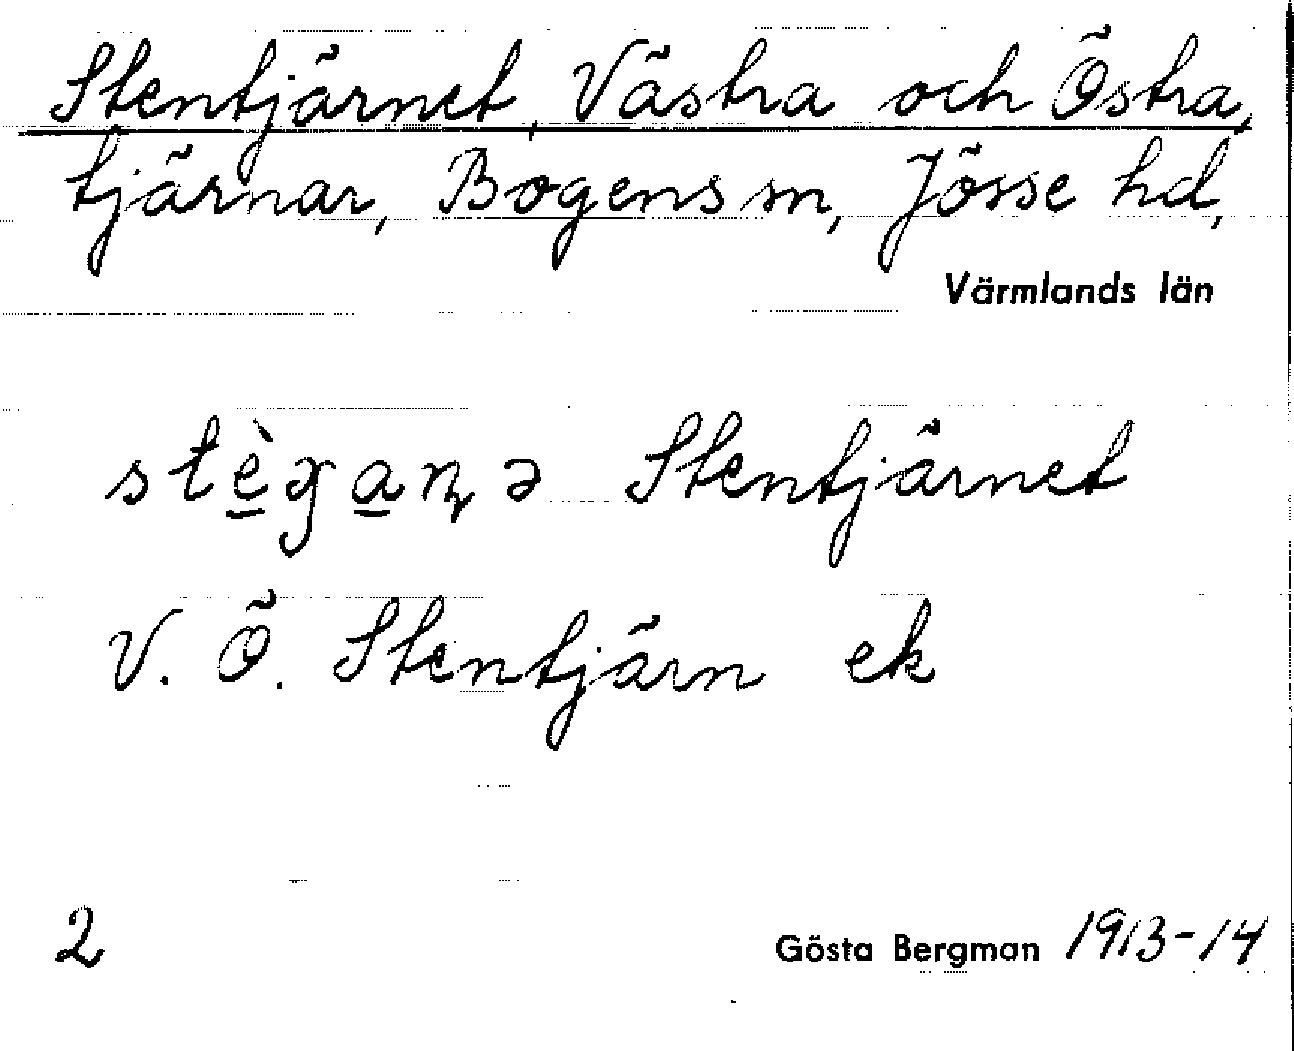 Stentjärnet, Västra och Östra,
tjärnar, Bogens sn, Jösse hd,
Värmlands län
stèɡaɳə Stentjärnet
V. Ö. Stentjärn ek
2
Gösta Bergman 1913-14